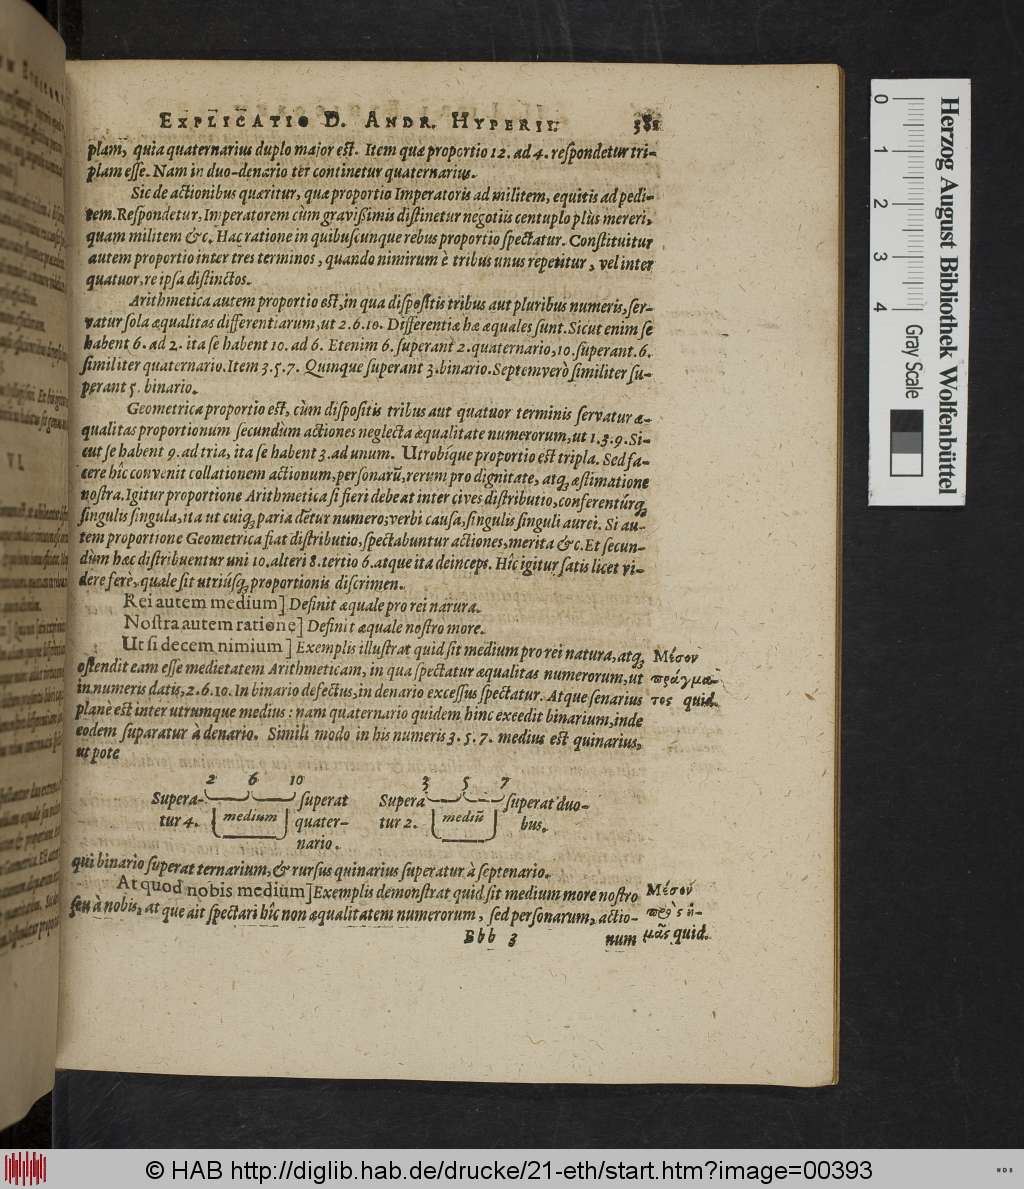 EXPLICATIO D. ANDR. HYPERII.
plam, quia quaternarius duplo major est. Item quæ proportio 12. ad 4. respondetur tri-
plam esse. Nam in duo-denario ter continetur quaternarius.
Sic de actionibus quæritur, quæ proportio Imperatoris ad militem, equitis ad pedi-
tem. Respondetur, Imperatorem cùm gravißimis distinetur negotiis centuplo plùs mereri,
quam militem &c. Hac ratione in quibuscunque rebus proportio spectatur. Constituitur
autem proportio inter tres terminos, quando nimirum è tribus unus repetitur, vel inter
quatuor, re ipsa distinctos.
Arithmetica autem proportio est, in qua dispositis tribus aut pluribus numeris, ser-
vatur sola æqualitas differentiarum, ut 2. 6. 10. Differentiæ hæ æquales sunt. Sicut enim se
habent 6. ad 2. ita se habent 10. ad 6. Etenim 6. superant 2. quaternario, 10. superant. 6.
similiter quaternario. Item 3. 5. 7. Quinque superant 3. binario. Septem verò similiter su-
perant 5. binario.
Geometrica proportio est, cùm dispositis tribus aut quatuor terminis servatur æ-
qualitas proportionum secundùm actiones neglecta æqualitate numerorum, ut 1. 3. 9. Si-
cut se habent 9. ad tria, ita se habent 3. ad unum. Utrobíque proportio est tripla. Sed fa-
cere hîc convenit collationem actionum, personarũ, rerum pro dignitate, atq́; æstimatione
nostra. Igitur proportione Arithmetica si fieri debeat inter cives distributio, conferentúrq́;
singulis singula, ita ut cuiq́; paria dẽtur numero; verbi causa, singulis singuli aurei. Si au-
tem proportione Geometrica fiat distributio, spectabuntur actiones, merita &c. Et secun-
dùm hæc distribuentur uni 10. alteri 8. tertio 6. atque ita deinceps. Hîc igitur satis licet vi-
dere ferè, quale sit utriúsq́; proportionis discrimen.
Rei autem medium] Definit æquale pro rei natura.
Nostra autem ratione] Definit æquale nostro more.
Ut si decem nimium] Exemplis illustrat quid sit medium pro rei natura, atq́;
ostendit eam esse medietatem Arithmeticam, in qua spectatur æqualitas numerorum, ut
in numeris datis, 2. 6. 10. In binario defectus, in denario excessus spectatur. Atque senarius
planè est inter utrumque medius: nam quaternario quidem hinc exeedit binarium, inde
eodem suparatur à denario. Simili modo in his numeris 3. 5. 7. medius est quinarius,
ut pote
Μέσον
πράγμα-
τος quid.
2 6 10
Supera-
tur 4.
medium
superat
quater-
nario.
3 5 7
Supera
tur 2.
mediũ
superat duo-
bus.
qui binario superat ternarium, & rursus quinarius superatur à septenario.
At quod nobis medium] Exemplis demonstrat quid sit medium more nostro
seu à nobis, at que ait spectari hîc non æqualitatem numerorum, sed personarum, actio-
Μέσον
πρὸς ἡ-
μᾶς quid.
Bbb 3 num
Herzog August Bibliothek Wolfenbüttel
0 1 2 3 4
Gray Scale
© HAB http://diglib.hab.de/drucke/21-eth/start.htm?image=00393